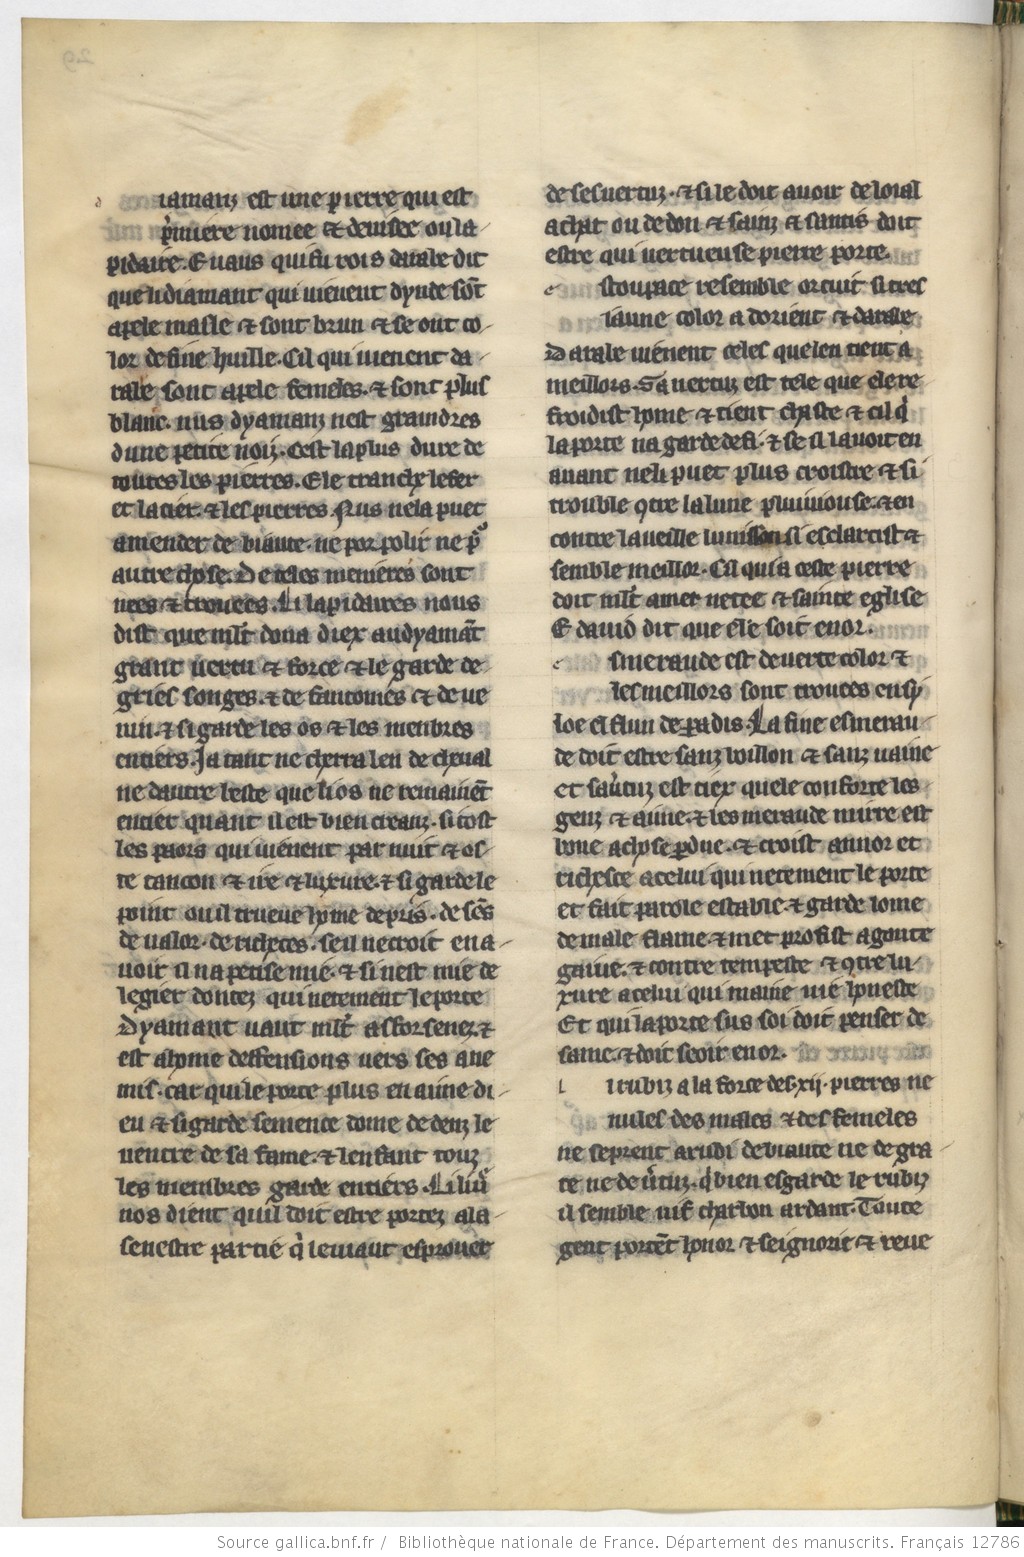 iamanz est une pierre qui est
p̃miere nomee & devisee ou la-
pidaire. Evaus qui fu rois darabe dit
que li diamant qui vienent dynde sõt
apele masle & sont brun & se ont co-
lor de fine huille. Cil qui vienent da-
rabe sont apele femeles. & sont plus
blanc. nus dyamanz nest graindres
dune petite noiz. Cest la plus dure de
toutes les pierres. Ele tranche le fer
et lacier. & les pierres. Nus ne la puet
amender de biaute. ne por polir ne p̃
autre chose. De teles menieres sont
nees & trouees. Li lapidaires nous
dist que ml̃t dona diex au dyamãt
grant vertu & force & le garde de
griés songes. & de fantomes & de ve
nin. & si garde les os & les menbres
entiers. Ja tant ne cherra len de cheval
ne dautre beste que li os ne remainẽt
entier quant il est bien creanz. si tost
les paors qui vienent par nuit & os-
te tancon & ire & luxure. & si garde le
point ou il trueve home de pris. de sẽs
de valor. de richeces. se il ne croit en a-
voir il napetise mie. & si nest mie de
legier doutez qui netement le porte
Dyamant vaut ml̃t as forsenez. &
est a home deffensions vers ses ane
mis. car qui le porte plus en aime di-
eu & si garde semence dome dedenz le
ventre de sa fame. & lenfant touz
les membres garde entiers. Li liv̾
nos dient quil doit estre portez a la-
senestre partie q̾ le viaut esprover
de ses vertuz. & si le doit avoir de loial
achat ou de don & sainz & saintis doit
estre qui vertueuse pierre porte.
e stoupace resemble or cuit si tres
iaune color a dorient & darabe
Darabe vienent celes que len tient a
meillors. Sa vertuz est tele que ele re
froidist home & tient chaste & cil q̾
la porte na garde de fi. & se il lavoit en
avant ne li puet plus croistre & si
trouble ꝯtre la lune pluiuiouse. & en
contre la veille lunison si esclarcist &
semble meillor. Cil qui a ceste pierre
doit ml̃t amer netee & sainte eglise
E david dit que ele soit en or.
e smeraude est de verte color &
les meillors sont trouees en sỹ
loe el flun de ꝑadis. La fine esmerau-
de doit estre sanz boillon & sanz vaine
et sav̾tuz est tiex quele conforte les
genz & aime. & les meraude mure est
bone a chose ꝑdue. & croist annor et
richesce a celui qui netement le porte
et fait parole estable. & garde lome
de male flame. & met profist a goute
gaiue. & contre tempeste & ꝯtre lu-
xure a celui qui maine vie honeste
Et qui la porte sus soi doit penser de
same. & doit seoir en or.
l i rubiz a la force des .xij. pierres ne
nules des masles & des femeles
ne se prent a rudi de biaute ne de gra
ce ne de v̾tuz. q̾ bien esgarde le rubiz
il semble uif charbon ardant. Toute
gent portẽt honor & seignorie & reve
Source gallica.bnf.fr / Bibliothèque nationale de France. Département des manuscrits. Français 12786